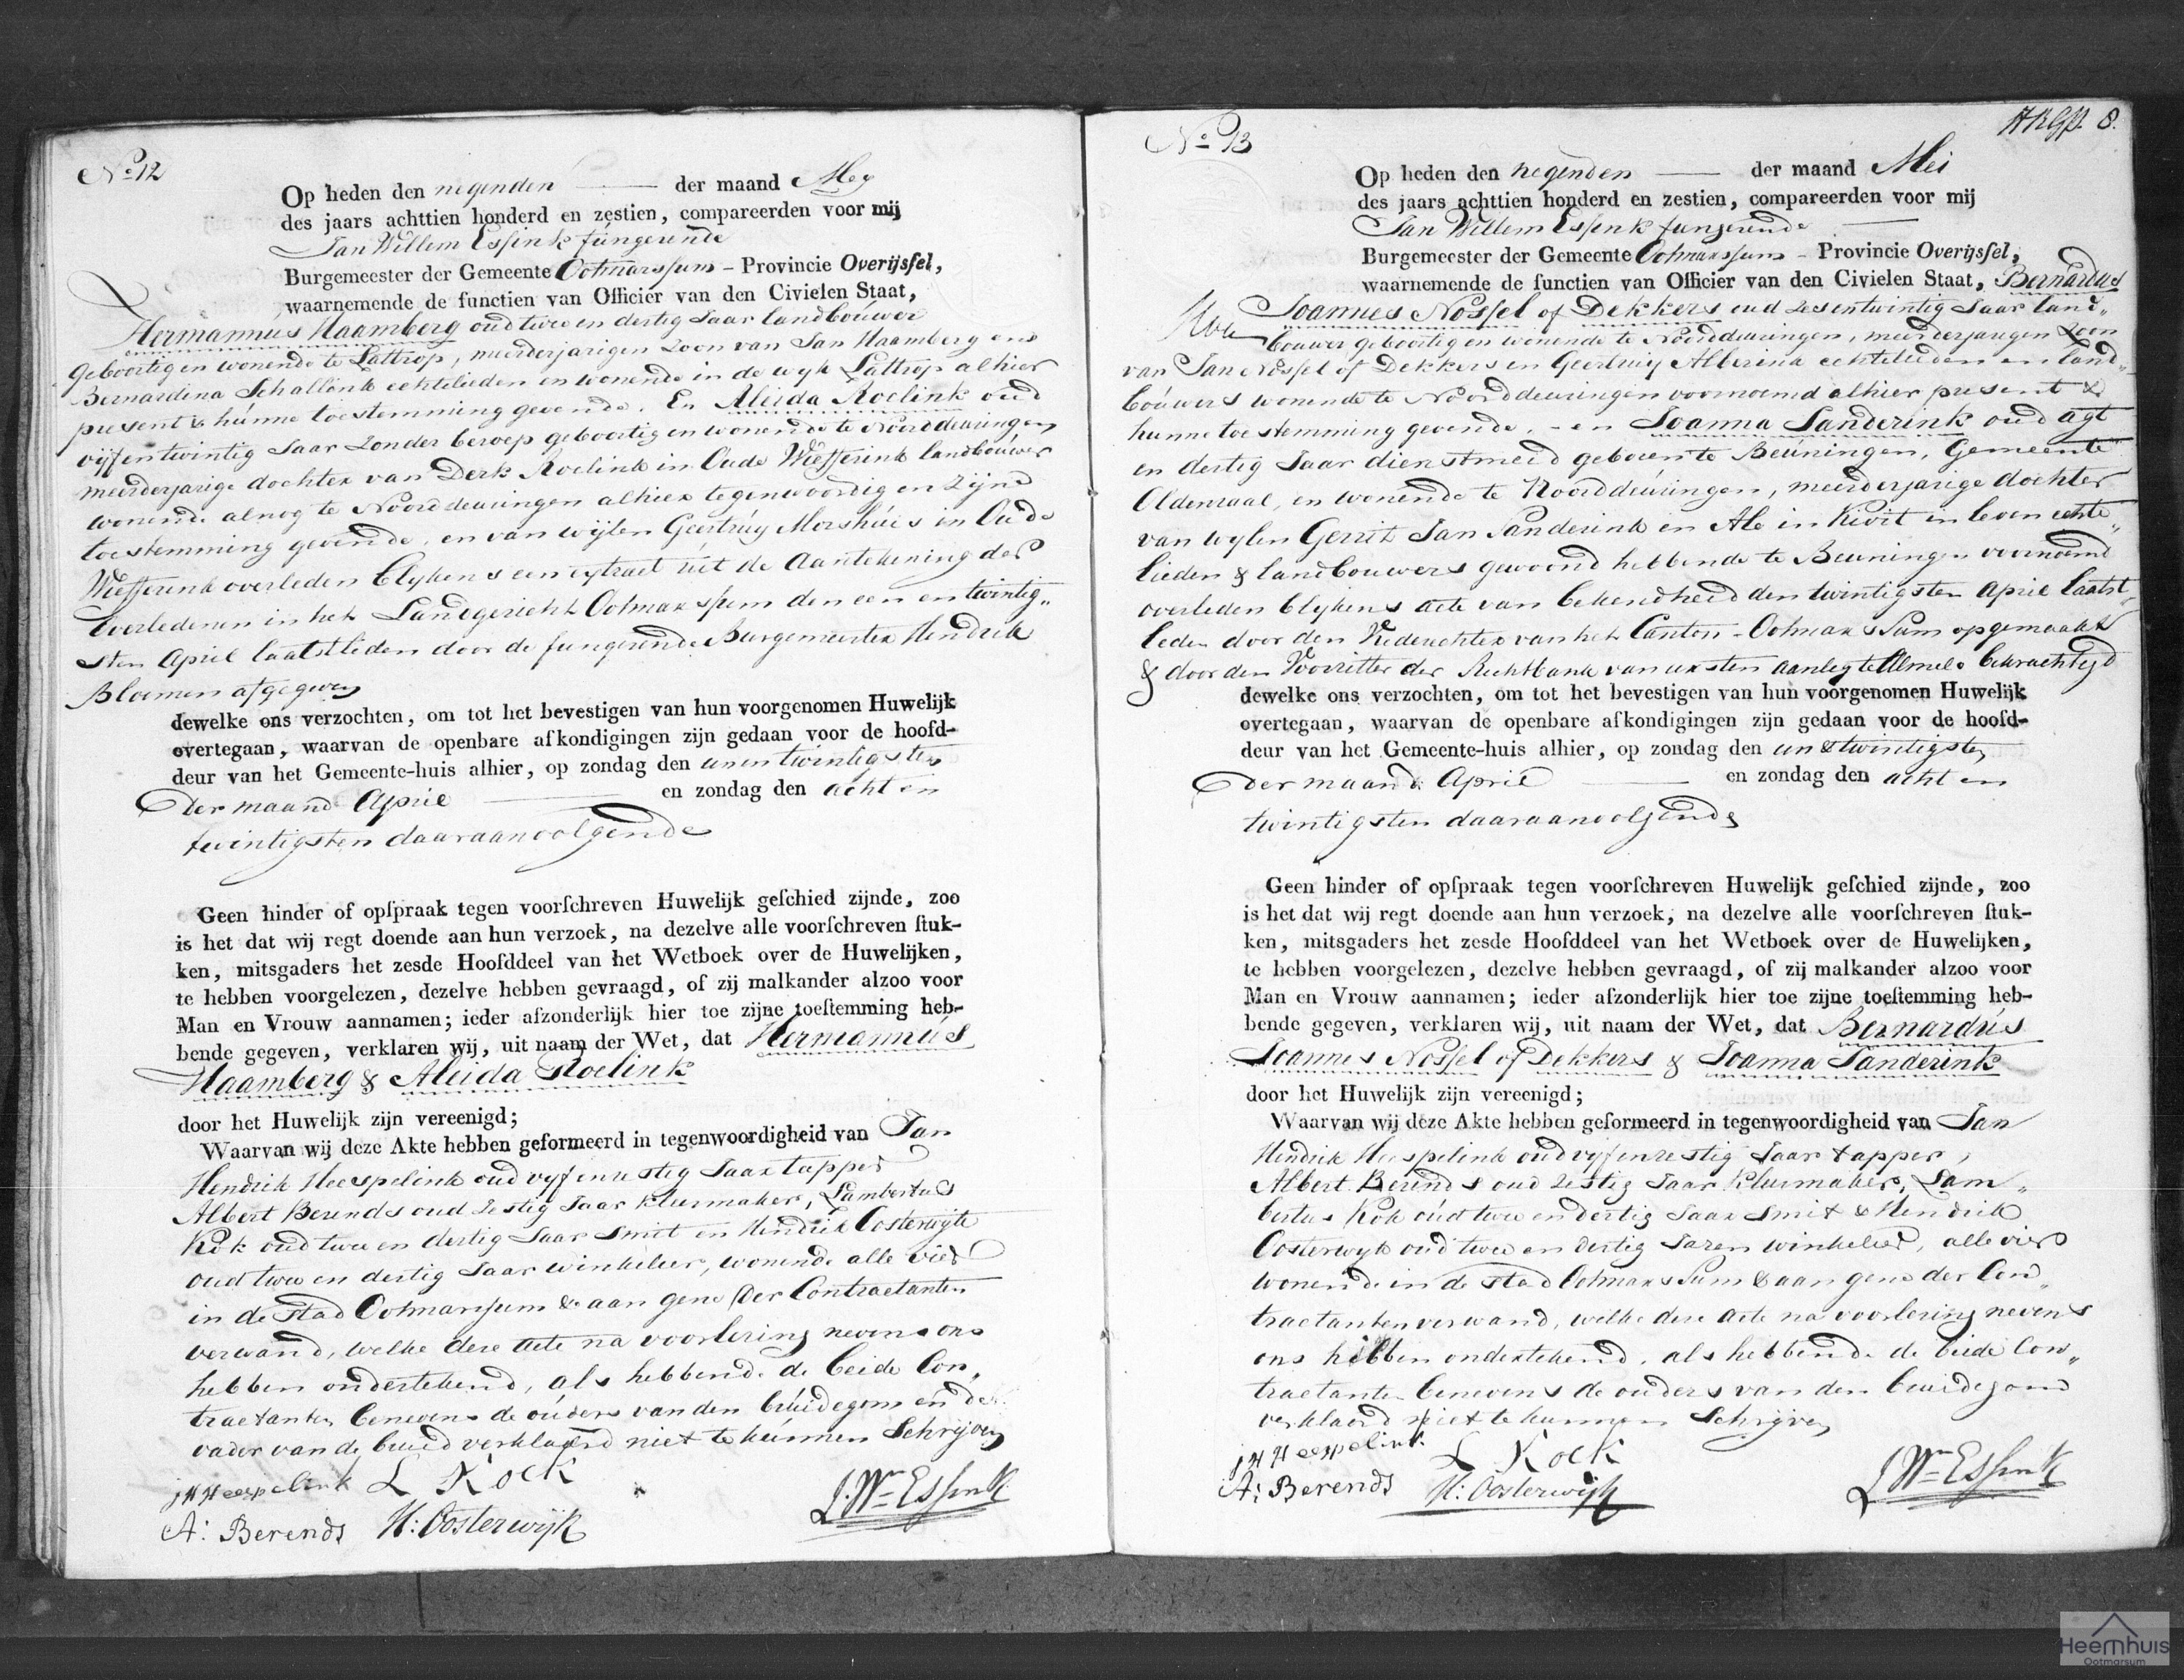 No 12
Op heden den negenden der maand Mey
des jaars achttien honderd en zestien, compareerden voor mij
Jan Willem Essink fungerende
Burgemeester der Gemeente Ootmarssum - Provincie Overijsſel,
waarnemende de functien van Officier van den Civielen Staat,
Hermannus Haamberg oud twee en dertig Jaar landbouwer
geboortig en wonende te Lattrop, meerderjarigen Zoon van Jan Haamberg en
Bernardina Schallink echtelieden en wonende in de wyk Lattrop alhier
present & hunne toestemming gevende. En Aleida Roelink oud
vijfentwintig Jaar zonder beroep geboortig en wonende te Noorddeuringen
meerderjarige dochter van Derk Roelink in Oude Wiefferink landbouwer
wonende alnog te Noorddeuringen alhier tegenwoordig en zijne
toestemming gevende, en van wijlen Geertruy Morshuis in Oude
Wiefferink overleden blykens een extract uit de Aantekening der
Overledenen in het Landgericht Ootmarssum den een en twintig„
sten April laatstleden door de fungerende Burgemeester Hendrik
Bloemen afgegeven
dewelke ons verzochten, om tot het bevestigen van hun voorgenomen Huwelijk
overtegaan, waarvan de openbare afkondigingen zijn gedaan voor de hoofd-
deur van het Gemeente-huis alhier, op zondag den eenentwintigsten
der maand April en zondag den acht en
twintigsten daaraanvolgende
Geen hinder of opſpraak tegen voorſchreven Huwelijk geſchied zijnde, zoo
is het dat wij regt doende aan hun verzoek, na dezelve alle voorſchreven ſtuk-
ken, mitsgaders het zesde Hoofddeel van het Wetboek over de Huwelijken,
te hebben voorgelezen, dezelve hebben gevraagd, of zij malkander alzoo voor
Man en Vrouw aannamen; ieder afzonderlijk hier toe zijne toeſtemming heb-
bende gegeven, verklaren wij, uit naam der Wet, dat Hermannus
Haamberg & Aleida Roelink
door het Huwelijk zijn vereenigd;
Waarvan wij deze Akte hebben geformeerd in tegenwoordigheid van Jan
Hendrik Heespelink oud vyfenzestig Jaar tapper
Albert Berends oud zestig Jaar kleermaker, Lambertus
Kok oud twee en dertig Jaar Smit en Hendrik Oosterwyk
oud twee en dertig Jaar winkelier, wonende alle vier
in de Stad Ootmarssum & aan gene der Contractanten
verwand, welke deze acte na voorlezing nevens ons
hebben ondertekend, als hebbende de beide Con„
tractanten benevens de ouders van den bruidegom en de
vader van de bruid verklaard niet te kunnen Schryven
JH Heespelink L Kock
A: Berends H: Oosterwijk J. Wm Essink
HRGP. 8.
No 13
Op heden den negenden der maand Mei
des jaars achttien honderd en zestien, compareerden voor mij
Jan Willem Essink fungerende
Burgemeester der Gemeente Ootmarssum - Provincie Overijsſel,
waarnemende de functien van Officier van den Civielen Staat, Bernardus
Joannes Nossel of Dekkers oud zesentwintig Jaar land„
bouwer geboortig en wonende te Noorddeuringen, meerderjarigen Zoon
van Jan Nossel of Dekkers en Geertruy Alberink echtelieden en land„
bouwers wonende te Noorddeuringen voornoemd alhier present &
hunne toestemming gevende. - en Joanna Sanderink oud agt
en dertig Jaar dienstmeid geboren te Beuningen, Gemeente
Oldenzaal, en wonende te Noorddeuringen, meerderjarige dochter
van wylen Gerrit Jan Sanderink en Ale in Kivit in leven echte„
lieden & landbouwers gewoond hebbende te Beuningen voornoemd
overleden blykens acte van bekendheid den twintigsten April laatst„
leden door den Vrederechter van het Canton - Ootmarssum opgemaakt
& door den Voorzitter der Rechtbank van eersten aanleg te Almelo bekrachtigd
dewelke ons verzochten, om tot het bevestigen van hun voorgenomen Huwelijk
overtegaan, waarvan de openbare afkondigingen zijn gedaan voor de hoofd-
deur van het Gemeente-huis alhier, op zondag den een & twintigsten
der maand April en zondag den acht en
twintigsten daaraanvolgende
Geen hinder of opſpraak tegen voorſchreven Huwelijk geſchied zijnde, zoo
is het dat wij regt doende aan hun verzoek, na dezelve alle voorſchreven ſtuk-
ken, mitsgaders het zesde Hoofddeel van het Wetboek over de Huwelijken,
te hebben voorgelezen, dezelve hebben gevraagd, of zij malkander alzoo voor
Man en Vrouw aannamen; ieder afzonderlijk hier toe zijne toeſtemming heb-
bende gegeven, verklaren wij, uit naam der Wet, dat Bernardus
Joannes Nossel of Dekkers & Joanna Sanderink
door het Huwelijk zijn vereenigd;
Waarvan wij deze Akte hebben geformeerd in tegenwoordigheid van Jan
Hendrik Heespelink oud vyfenzestig Jaar tapper,
Albert Berends oud zestig Jaar Kleermaker, Lam„
bertus Kok oud twee en dertig Jaar Smit & Hendrik
Oosterwyk oud twee en dertig Jaren winkelier, alle vier
wonende in de Stad Ootmarssum & aan gene der Con„
tractanten verwand, welke deze acte na voorlezing nevens
ons hebben ondertekend, als hebbende de beide Con„
tractanten benevens de ouders van den bruidegom
verklaard niet te kunnen Schryven
JH Heespelink L Kock
A: Berends H: Oosterwijk J Wm Essink
Heemhuis
Ootmarsum